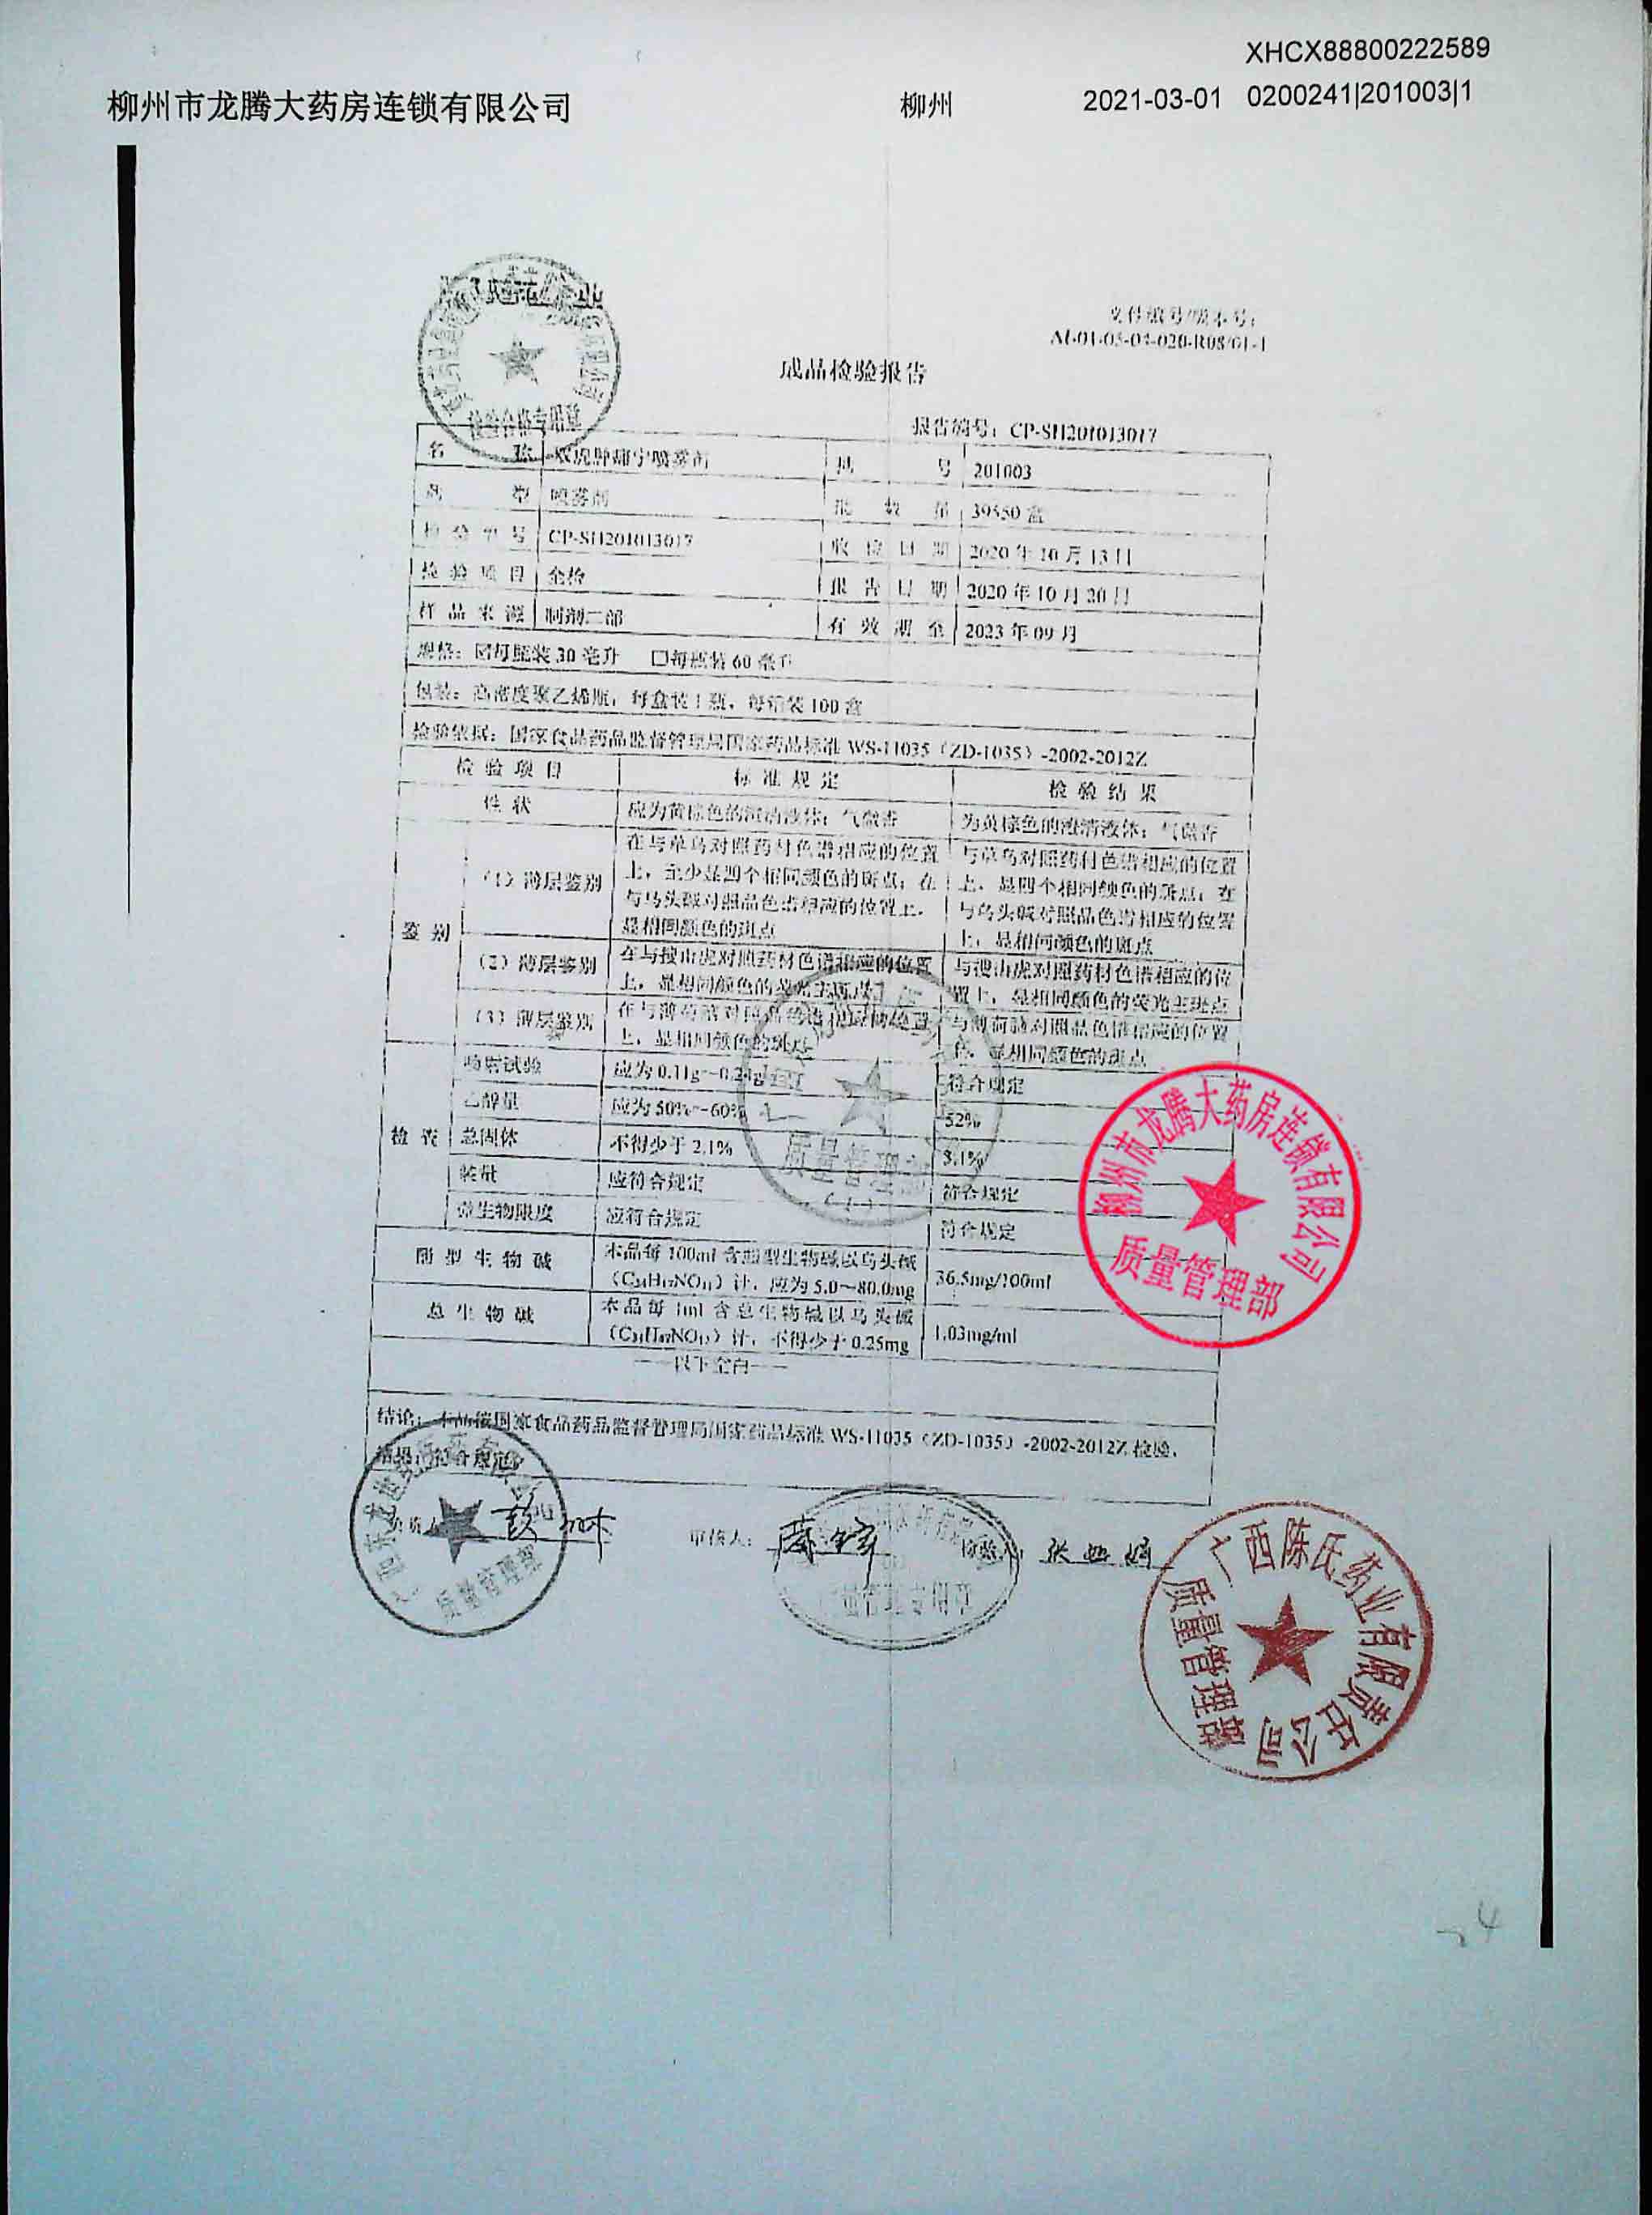 XHCX88800222589
柳州市龙腾大药房连锁有限公司 柳州 2021-03-01 0200241|201003|1
文件编号/版本号:
成品检验报告
报告编号: CP-SH201013017
名 称 双虎肿痛宁喷雾剂 批 号 201003
剂 型 喷雾剂 批 数 量 39550盒
检 验 单 号 CP-SH201013017 收 检 日 期 2020年10月13日
检 验 项 目 全检 报 告 日 期 2020年10月30日
样 品 来 源 制剂二部 有 效 期 至 2023年09月
规格: ☑每瓶装30毫升 □每瓶装60毫升
包装: 高密度聚乙烯瓶, 每盒装1瓶, 每箱装100盒
检验依据: 国家食品药品监督管理局国家药品标准 WS-11035 (ZD-1035) -2002-2012Z
检 验 项 目 标 准 规 定 检 验 结 果
性 状 应为黄棕色的澄清液体; 气微香 为黄棕色的澄清液体; 气微香
鉴 别
(1) 薄层鉴别 在与草乌对照药材色谱相应的位置上, 至少显四个相同颜色的斑点; 在与乌头碱对照品色谱相应的位置上, 显相同颜色的斑点 与草乌对照药材色谱相应的位置上, 显四个相同颜色的斑点; 在与乌头碱对照品色谱相应的位置上, 显相同颜色的斑点
(2) 薄层鉴别 在与搜山虎对照药材色谱相应的位置上, 显相同颜色的荧光主斑点 与搜山虎对照药材色谱相应的位置上, 显相同颜色的荧光主斑点
(3) 薄层鉴别 在与薄荷脑对照品色谱相应的位置上, 显相同颜色的斑点 与薄荷脑对照品色谱相应的位置上, 显相同颜色的斑点
检 查
喷射试验 应为0.11g~0.24g 符合规定
乙醇量 应为50%~60% 52%
总固体 不得少于2.1% 3.1%
装量 应符合规定 符合规定
微生物限度 应符合规定 符合规定
酯 型 生 物 碱 本品每100ml含酯型生物碱以乌头碱(C34H47NO11)计, 应为5.0~80.0mg 36.5mg/100ml
总 生 物 碱 本品每1ml含总生物碱以乌头碱(C34H47NO11)计, 不得少于0.25mg 1.03mg/ml
——以下空白——
结论: 本品按国家食品药品监督管理局国家药品标准 WS-11035 (ZD-1035) -2002-2012Z 检验,
结果: 符合规定
负责人: 审核人: 检验人:
检验合格专用章
质量管理部
(1)
柳州市龙腾大药房连锁有限公司
质量管理部
质量管理部
广西陈氏药业有限责任公司
质量管理部